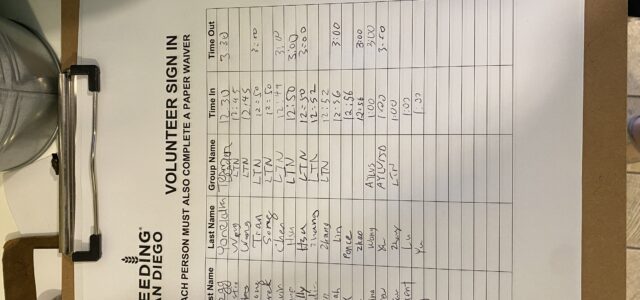 EEDING®
AN DIEGO
VOLUNTEER SIGN IN
ACH PERSON MUST ALSO COMPLETE A PAPER WAIVER
st Name Last Name Group Name Time In Time Out
12:30 3:30
Wong LTN 12:45
Wong LTN 12:45
Tran LTN 12:50 3:00
Song LTN 12:50
Chen LTN 3:10
Hsu LTN 12:50 3:00
Hsu LTN 12:50 3:00
Zhang LTN 12:52
Zhang LTN 12:52
Lin 12:56 3:00
Ponce 12:56
Zhao 12:56 3:00
Wong AYLUS 1:00 3:00
Yu 1:00 3:00
Zhang LTN 1:00
Lu 1:00
Yu 1:00